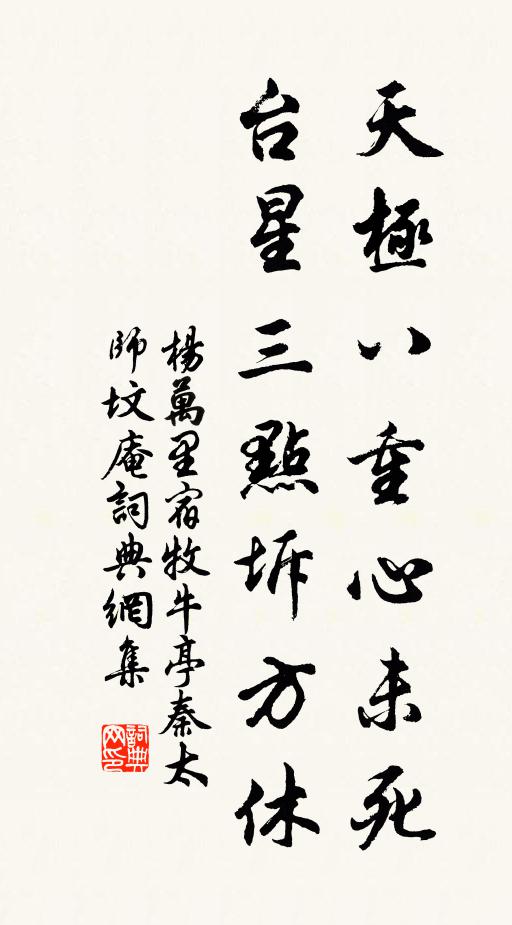 天極八重心未死
台星三點坼方休
楊萬里宿牧牛亭秦太
師墳庵詞典網集
詞典
网印